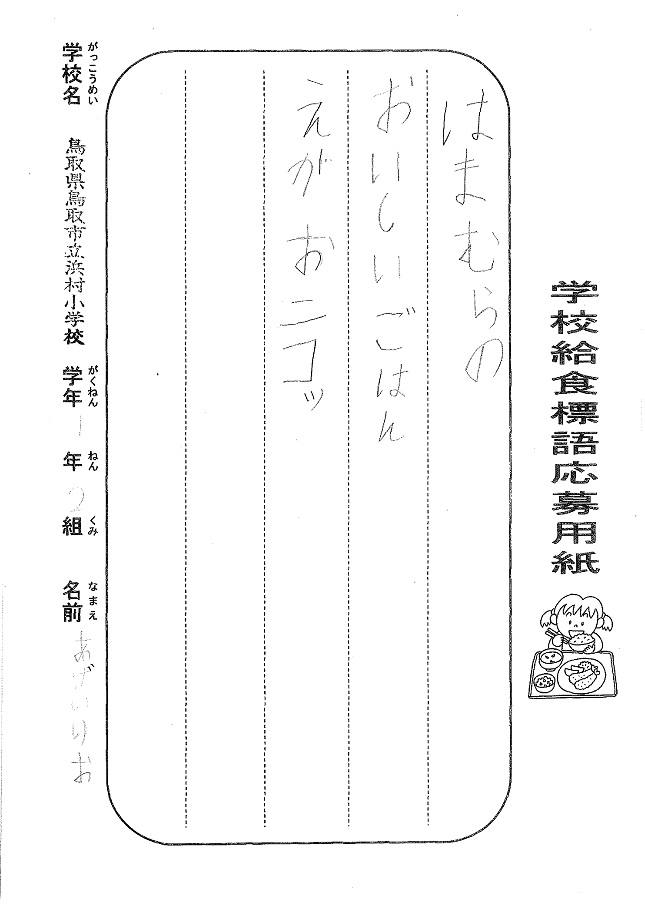 学校給食標語応募用紙
はまむらの
おいしいごはん
えがおニコッ
がっこうめい
学校名 鳥取県鳥取市立浜村小学校
がくねん ねん くみ
学年 1 年 2 組
なまえ
名前 あがいりお